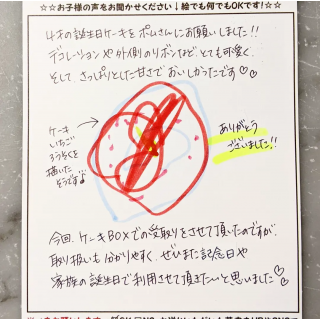 ☆☆お子様の声をお聞かせください↓絵でも何でもOKです!☆☆
4才の誕生日ケーキをポムさんにお願いしました!!
デコレーションや外側のリボンなどとても可愛く、
そして さっぱりとした甘さで おいしかったです♡♡
ケーキ
いちご
ろうそくを
描いた
そうです♪
ありがとう
ございました!!
今回、ケーキBOXでの受取りをさせて頂いたのですが、
取り扱いも分かりやすく、ぜひまた記念日や
家族の誕生日で利用させて頂きたいと思いました♡♡